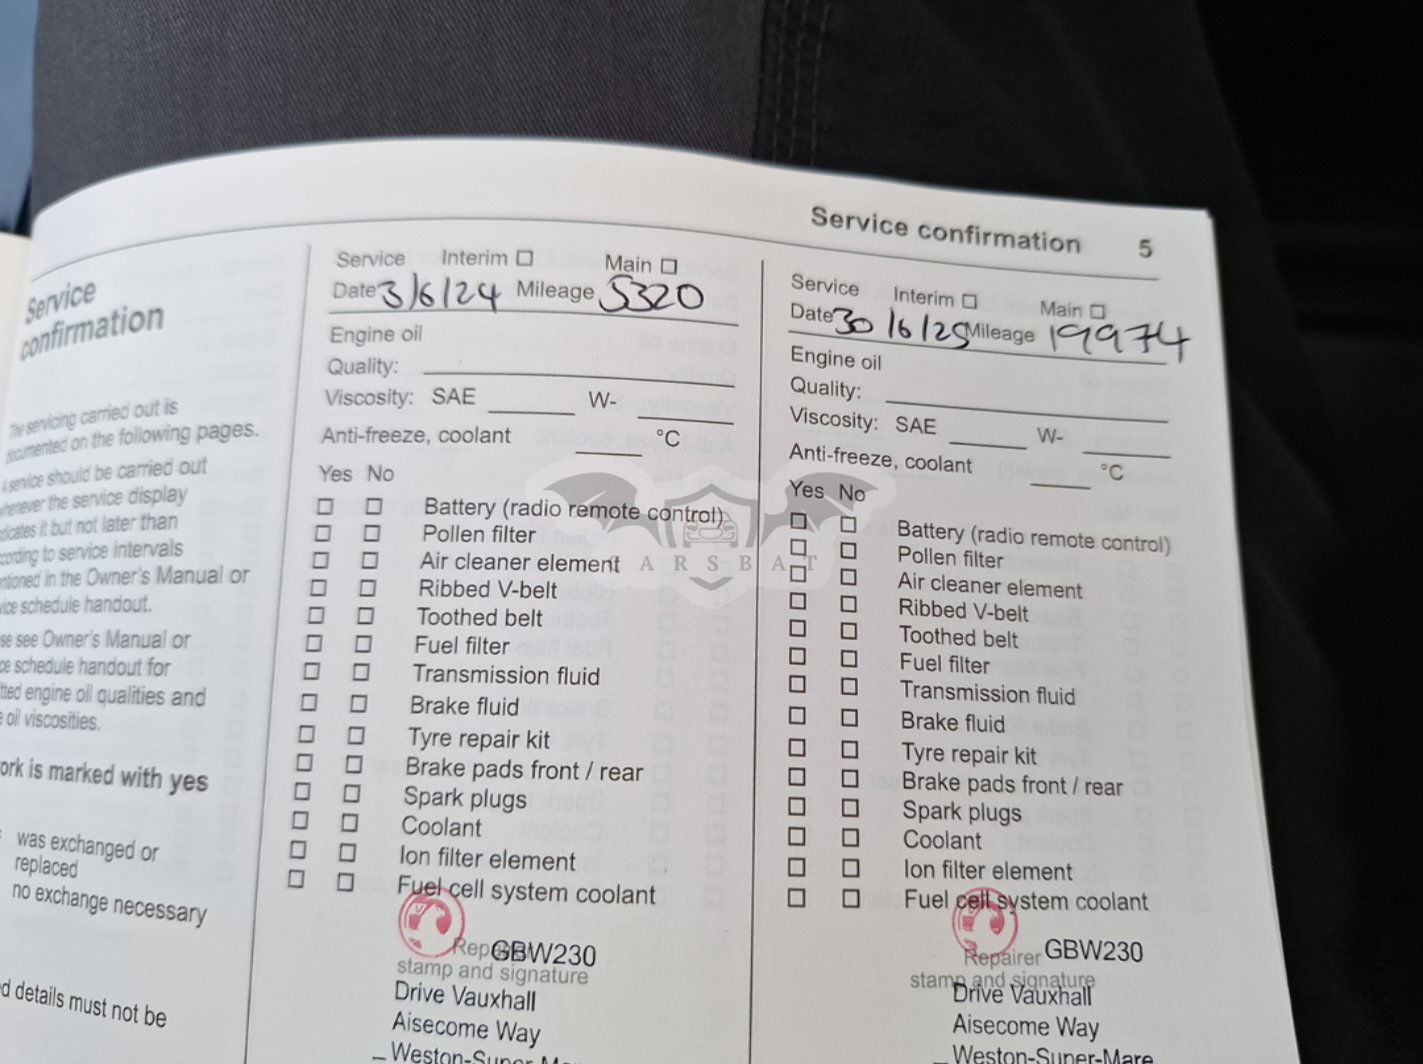 Service confirmation 5
Service
confirmation
The servicing carried out is
documented on the following pages.
A service should be carried out
whenever the service display
indicates it but not later than
according to service intervals
mentioned in the Owner's Manual or
service schedule handout.
see Owner's Manual or
schedule handout for
engine oil qualities and
oil viscosities.
work is marked with yes
was exchanged or
replaced
no exchange necessary
details must not be
Service Interim Main
Date 3/6/24 Mileage 5320
Engine oil
Quality:
Viscosity: SAE W-
Anti-freeze, coolant °C
Yes No
Battery (radio remote control)
Pollen filter
Air cleaner element
Ribbed V-belt
Toothed belt
Fuel filter
Transmission fluid
Brake fluid
Tyre repair kit
Brake pads front / rear
Spark plugs
Coolant
Ion filter element
Fuel cell system coolant
Repairer GBW230
stamp and signature
Drive Vauxhall
Aisecome Way
Weston-Super-Mare
Service Interim Main
Date 30/6/25 Mileage 19974
Engine oil
Quality:
Viscosity: SAE W-
Anti-freeze, coolant °C
Yes No
Battery (radio remote control)
Pollen filter
Air cleaner element
Ribbed V-belt
Toothed belt
Fuel filter
Transmission fluid
Brake fluid
Tyre repair kit
Brake pads front / rear
Spark plugs
Coolant
Ion filter element
Fuel cell system coolant
Repairer GBW230
stamp and signature
Drive Vauxhall
Aisecome Way
Weston-Super-Mare
CARSBAT